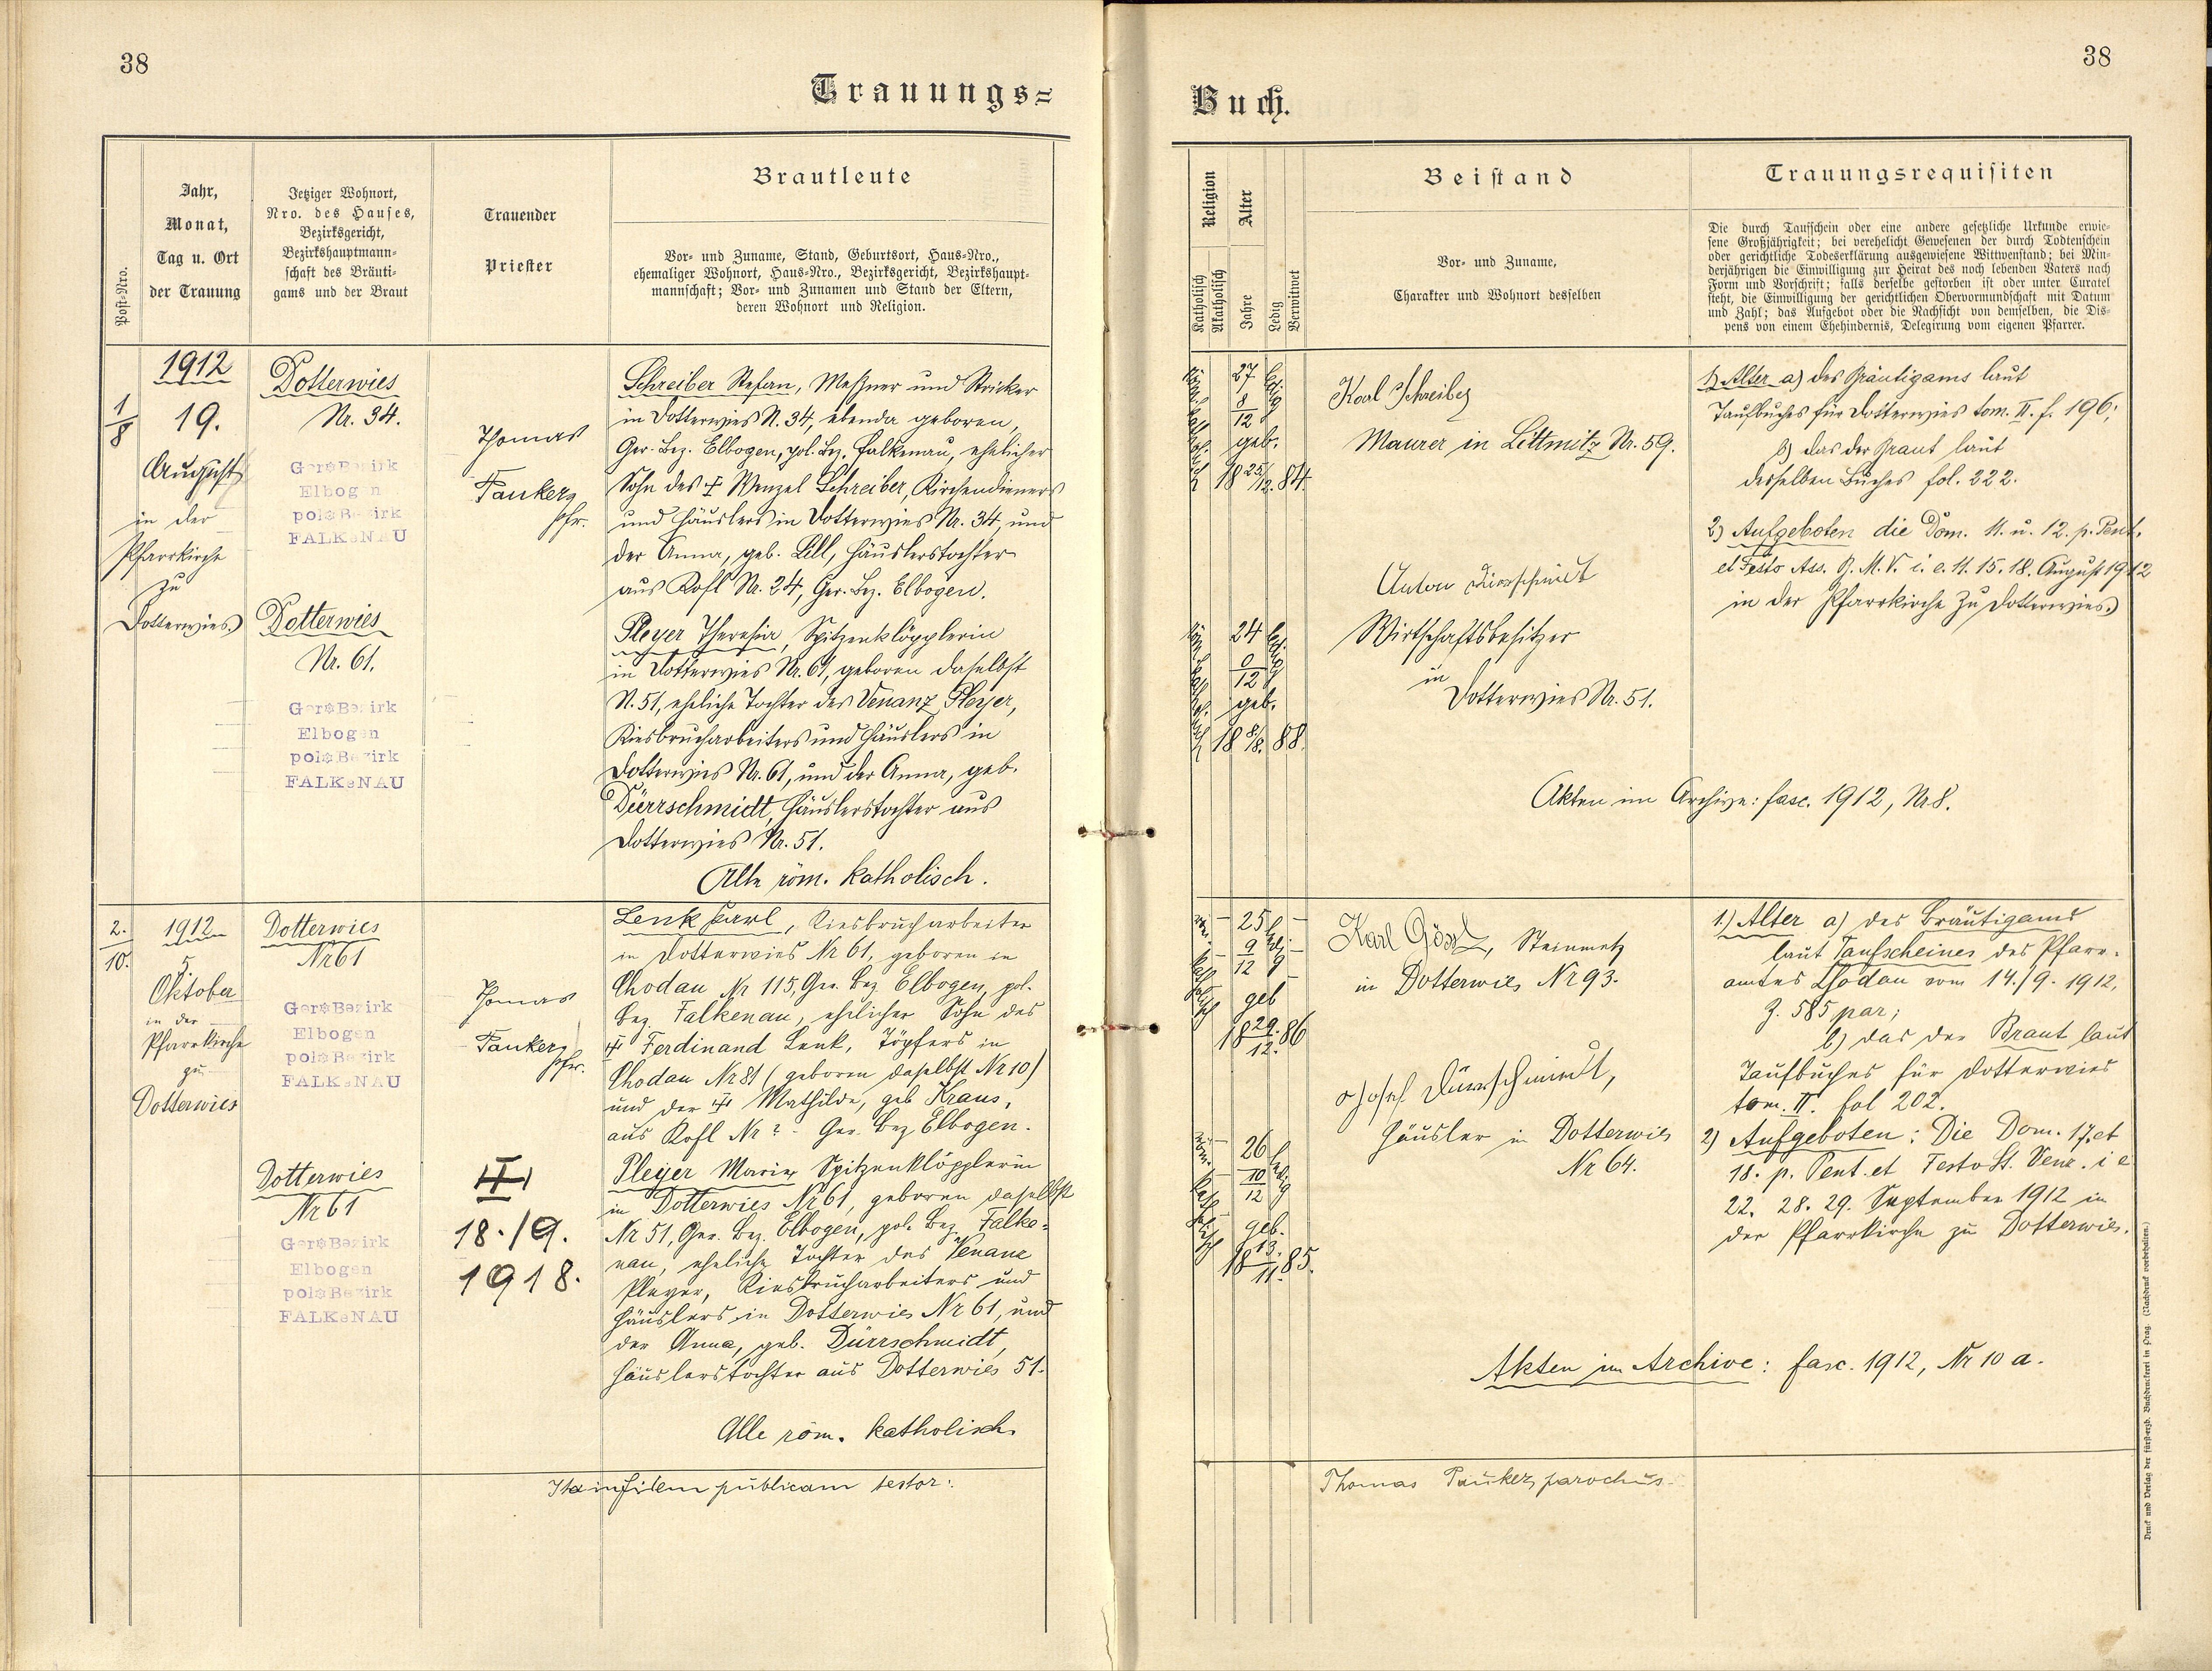 38
Trauungs=
Post-Nro.
Jahr,
Monat,
Tag u. Ort
der Trauung
Jetziger Wohnort,
Nro. des Hauses,
Bezirksgericht,
Bezirkshauptmann-
schaft des Bräuti-
gams und der Braut
Trauender
Priester
Brautleute
Vor- und Zuname, Stand, Geburtsort, Haus-Nro.,
ehemaliger Wohnort, Haus-Nro., Bezirksgericht, Bezirkshaupt-
mannschaft; Vor- und Zunamen und Stand der Eltern,
deren Wohnort und Religion.
1/8
1912
19.
August
in der
Pfarrkirche
zu
Dotterwies
Dotterwies
Nr. 34.
Ger=Bezirk
Elbogen
pol=Bezirk
FALKeNAU
Dotterwies
Nr. 61.
Ger=Bezirk
Elbogen
pol=Bezirk
FALKeNAU
Thomas
Pauker,
Pfr.
Schreiber Stefan, Meßner und Stricker
in Dotterwies N. 34, ebenda geboren,
Ger. Bez. Elbogen, pol. Bez. Falkenau, ehelicher
Sohn des ✝ Wenzel Schreiber, Kirchendieners
und Häuslers in Dotterwies Nr. 34, und
der Anna, geb. Lill, Häuslerstochter
aus Kofl Nr. 24, Ger. Bez. Elbogen.
Pleyer Theresia, Spitzenklöpplerin
in Dotterwies Nr. 61, geboren daselbst
N. 51, eheliche Tochter des Venanz Pleyer,
Kiesbrucharbeiters und Häuslers in
Dotterwies Nr. 61, und der Anna, geb.
Dürrschmidt, Häuslerstochter aus
Dotterwies Nr. 51.
Alle röm. katholisch.
2.
10.
1912
5.
Oktober
in der
Pfarrkirche
zu
Dotterwies
Dotterwies
Nr 61
Ger=Bezirk
Elbogen
pol=Bezirk
FALKeNAU
Dotterwies
Nr 61
Ger=Bezirk
Elbogen
pol=Bezirk
FALKeNAU
Thomas
Pauker,
Pfr.
18./9.
1918.
Lenk Karl, Kiesbrucharbeiter
in Dotterwies Nr 61, geboren in
Chodau Nr 115, Ger. Bez. Elbogen, pol.
Bez. Falkenau, ehelicher Sohn des
✝ Ferdinand Lenk, Töpfers in
Chodau Nr 81 (geboren daselbst Nr 10)
und der ✝ Mathilde, geb Kraus,
aus Kofl Nr ? - Ger. Bez Elbogen.
Pleyer Marie, Spitzenklöpplerin
in Dotterwies Nr 61, geboren daselbst
Nr 51, Ger. Bez. Elbogen, pol. Bez. Falke-
nau, eheliche Tochter des Venanc
Pleyer, Kiesbrucharbeiters und
Häuslers in Dotterwies Nr 61, und
der Anna, geb. Dürrschmidt,
Häuslerstochter aus Dotterwies 51.
Alle röm. katholisch.
Ita in fidem publicam testor:
38
Buch.
Religion
Katholisch
Akatholisch
Alter
Jahre
Ledig
Verwitwet
Beistand
Vor- und Zuname,
Charakter und Wohnort desselben
Trauungsrequisiten
Die durch Taufschein oder eine andere gesetzliche Urkunde erwie-
sene Großjährigkeit; bei verehelicht Gewesenen der durch Todtenschein
oder gerichtliche Todeserklärung ausgewiesene Wittwenstand; bei Min-
derjährigen die Einwilligung zur Heirat des noch lebenden Vaters nach
Form und Vorschrift; falls derselbe gestorben ist oder unter Curatel
steht, die Einwilligung der gerichtlichen Obervormundschaft mit Datum
und Zahl; das Aufgebot oder die Nachsicht von demselben, die Dis-
pens von einem Ehehindernis, Delegirung vom eigenen Pfarrer.
röm. katholisch
27
8/12
geb.
18 25/12. 84.
ledig
Karl Schreiber
Maurer in Littmitz Nr. 59.
röm. katholisch
24
0/12
geb.
18 8/8. 88.
ledig
Anton Dürrschmidt
Wirtschaftsbesitzer
in
Dotterwies Nr. 51.
1.) Alter a) des Bräutigams laut
Taufbuches für Dotterwies tom. II. f. 196;
b) das der Braut laut
desselben Buches fol. 222.
2) Aufgeboten die Dom. 11. u. 12. p. Pent.
et Festo Ass. B. M. V. i. e. 11. 15. 18. August 1912
in der Pfarrkirche zu Dotterwies.
Akten im Archive: fasc. 1912, Nr 8.
röm. katholisch
25
9/12
geb
18 29./12. 86
ledig
Karl Gössl, Steinmetz
in Dotterwies Nr 93.
röm. katholisch
26
10/12
geb.
18 13./11. 85.
ledig
Josef Dürrschmidt,
Häusler in Dotterwies
Nr 64.
1.) Alter a) des Bräutigams
laut Taufscheines des Pfarr-
amtes Chodau vom 14./9. 1912,
Z. 585 par;
b) das der Braut laut
Taufbuches für Dotterwies
tom. II. fol 202.
2) Aufgeboten: Die Dom. 17. et
18. p. Pent. et Festo St. Venc. i e
22. 28. 29. September 1912 in
der Pfarrkirche zu Dotterwies.
Akten im Archive: fasc. 1912, Nr 10 a.
Thomas Pauker, parochus.
Druck und Verlag der fürst-erzb. Buchdruckerei in Prag. (Nachdruck vorbehalten.)